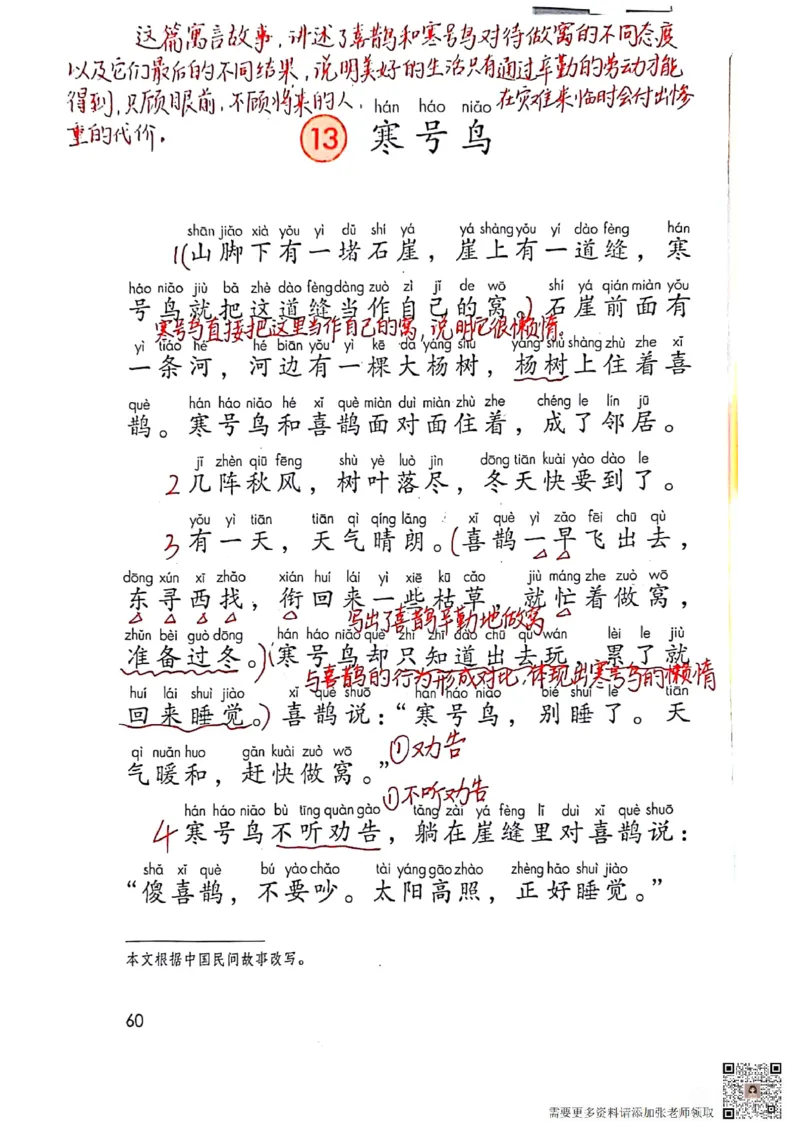 这篇寓言故事，讲述了喜鹊和寒号鸟对待做窝的不同态度
以及它们最后的不同结果，说明美好的生活只有通过辛勤的劳动才能
得到，只顾眼前，不顾将来的人，在灾难来临时会付出惨
重的代价。
hán háo niǎo
13 寒号鸟
shān jiǎo xià yǒu yì dǔ shí yá yá shàng yǒu yí dào fèng hán
1(山脚下有一堵石崖，崖上有一道缝，寒
háo niǎo jiù bǎ zhè dào fèng dàng zuò zì jǐ de wō shí yá qián miàn yǒu
号鸟就把这道缝当作自己的窝。)石崖前面有
寒号鸟直接把这里当作自己的窝，说明它很懒惰。
yì tiáo hé hé biān yǒu yì kē dà yáng shù yáng shù shàng zhù zhe xǐ
一条河，河边有一棵大杨树，杨树上住着喜
què hán háo niǎo hé xǐ què miàn duì miàn zhù zhe chéng le lín jū
鹊。寒号鸟和喜鹊面对面住着，成了邻居。
jǐ zhèn qiū fēng shù yè luò jìn dōng tiān kuài yào dào le
2几阵秋风，树叶落尽，冬天快要到了。
yǒu yì tiān tiān qì qíng lǎng xǐ què yì zǎo fēi chū qù
3有一天，天气晴朗。(喜鹊一早飞出去，
dōng xún xī zhǎo xián huí lái yì xiē kū cǎo jiù máng zhe zuò wō
东寻西找，衔回来一些枯草，就忙着做窝，
写出了喜鹊早勤地做窝
zhǔn bèi guò dōng hán háo niǎo què zhǐ zhī dào chū qù wán lèi le jiù
准备过冬。)(寒号鸟却只知道出去玩，累了就
与喜鹊的行为形成对比，体现出寒号鸟的懒惰
huí lái shuì jiào xǐ què shuō hán háo niǎo bié shuì le tiān
回来睡觉。)喜鹊说：“寒号鸟，别睡了。天
qì nuǎn huo gǎn kuài zuò wō
气暖和，赶快做窝。”①劝告
①不听劝告
hán háo niǎo bù tīng quàn gào tǎng zài yá fèng lǐ duì xǐ què shuō
4寒号鸟不听劝告，躺在崖缝里对喜鹊说：
shǎ xǐ què bú yào chǎo tài yáng gāo zhào zhèng hǎo shuì jiào
“傻喜鹊，不要吵。太阳高照，正好睡觉。”
本文根据中国民间故事改写。
60
需要更多资料请添加张老师领取